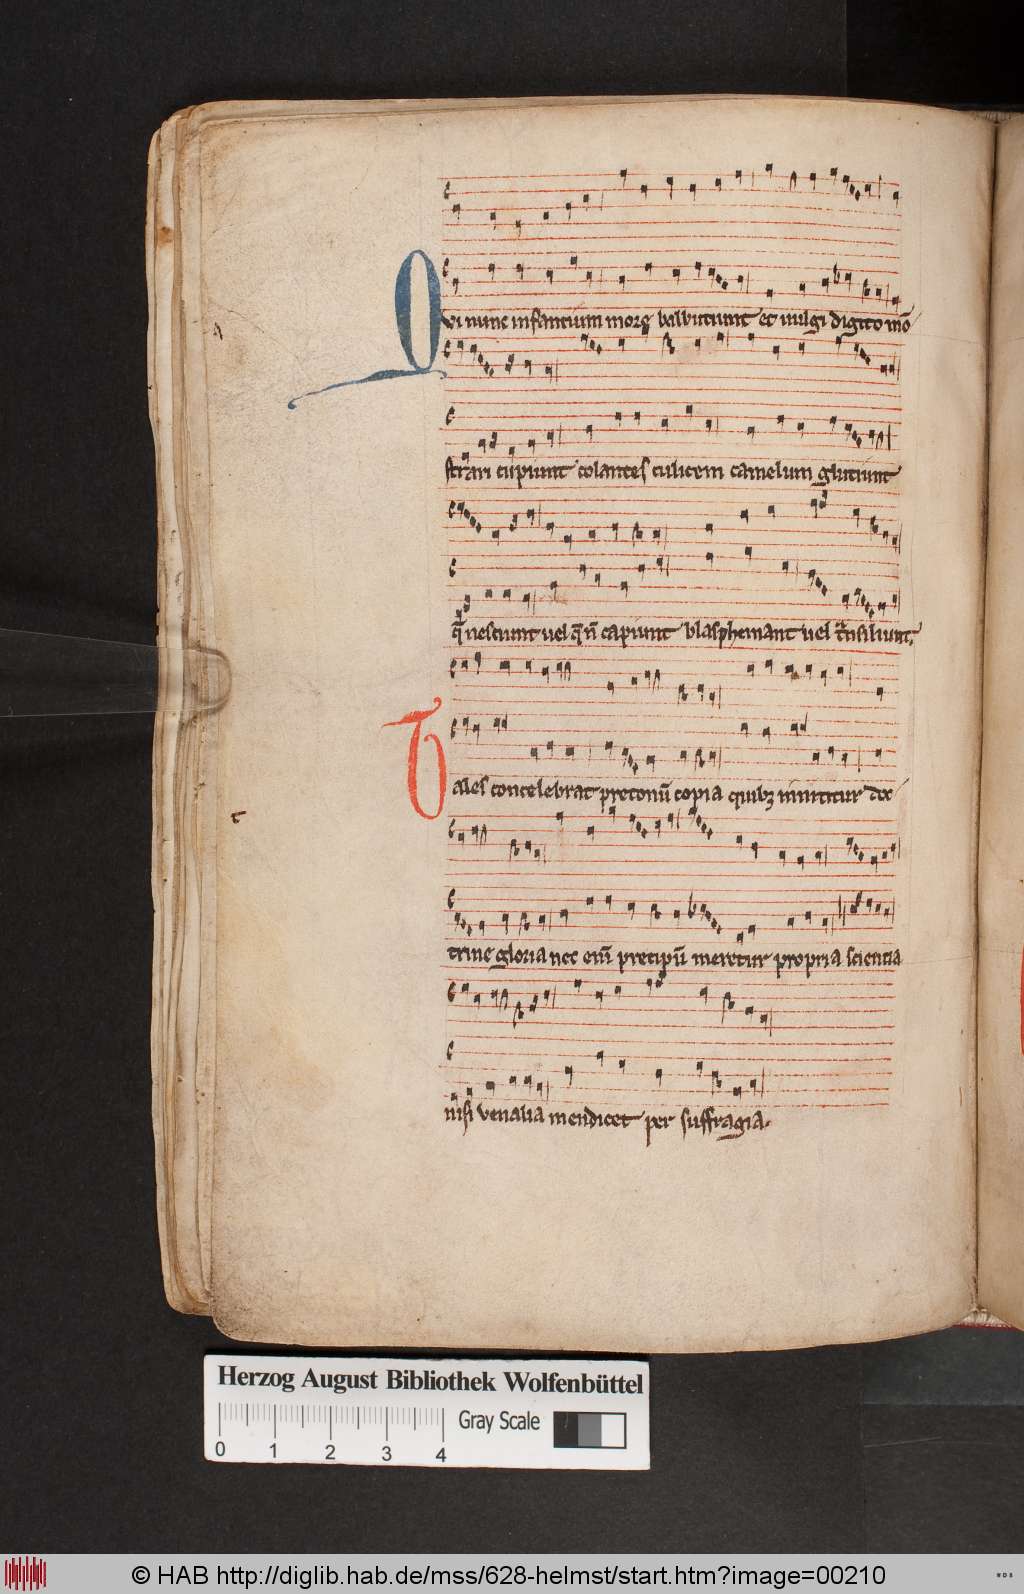 Qvi nunc infantium more balbutiunt et uulgi digito mō
strari cupiunt colantes culicem camelum glutiunt
q̄ nesciunt uel q̄ n̄ capiunt blasphemant uel t̃nsiliunt.
Tales concelebrat preconū copia quibꝫ innititur doc
trine gloria nec eni᷑ precipū meretur propria scientia
nisi venalia mendicet per suffragia.
Herzog August Bibliothek Wolfenbüttel
Gray Scale
0 1 2 3 4
© HAB http://diglib.hab.de/mss/628-helmst/start.htm?image=00210